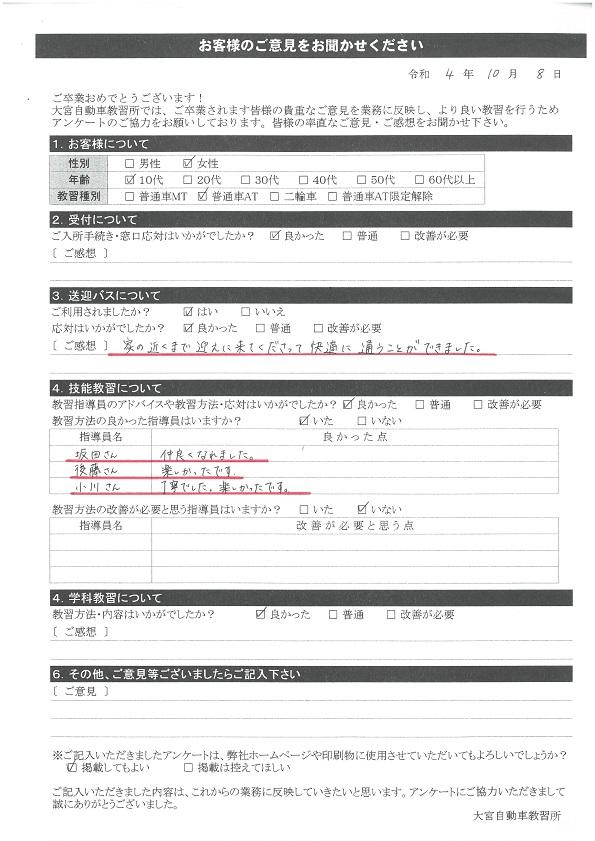 お客様のご意見をお聞かせください
令和 4 年 10 月 8 日
ご卒業おめでとうございます！
大宮自動車教習所では、ご卒業されます皆様の貴重なご意見を業務に反映し、より良い教習を行うため
アンケートのご協力をお願いしております。皆様の率直なご意見・ご感想をお聞かせ下さい。
1. お客様について
性別 □ 男性 ☑ 女性
年齢 ☑ 10代 □ 20代 □ 30代 □ 40代 □ 50代 □ 60代以上
教習種別 □ 普通車MT ☑ 普通車AT □ 二輪車 □ 普通車AT限定解除
2. 受付について
ご入所手続き・窓口応対はいかがでしたか？ ☑ 良かった □ 普通 □ 改善が必要
〔 ご感想 〕
3. 送迎バスについて
ご利用されましたか？ ☑ はい □ いいえ
応対はいかがでしたか？ ☑ 良かった □ 普通 □ 改善が必要
〔 ご感想 〕 家の近くまで迎えに来てくださって快適に通うことができました。
4. 技能教習について
教習指導員のアドバイスや教習方法・応対はいかがでしたか？ ☑ 良かった □ 普通 □ 改善が必要
教習方法の良かった指導員はいますか？ ☑ いた □ いない
指導員名 良かった点
坂田さん 仲良くなれました。
後藤さん 楽しかったです.
小川さん 丁寧でした。楽しかったです。
教習方法の改善が必要と思う指導員はいますか？ □ いた ☑ いない
指導員名 改善が必要と思う点
4. 学科教習について
教習方法・内容はいかがでしたか？ ☑ 良かった □ 普通 □ 改善が必要
〔 ご感想 〕
6. その他、ご意見等ございましたらご記入下さい
〔 ご意見 〕
※ご記入いただきましたアンケートは、弊社ホームページや印刷物に使用させていただいてもよろしいでしょうか？
☑ 掲載してもよい □ 掲載は控えてほしい
ご記入いただきました内容は、これからの業務に反映していきたいと思います。アンケートにご協力いただきまして
誠にありがとうございました。
大宮自動車教習所